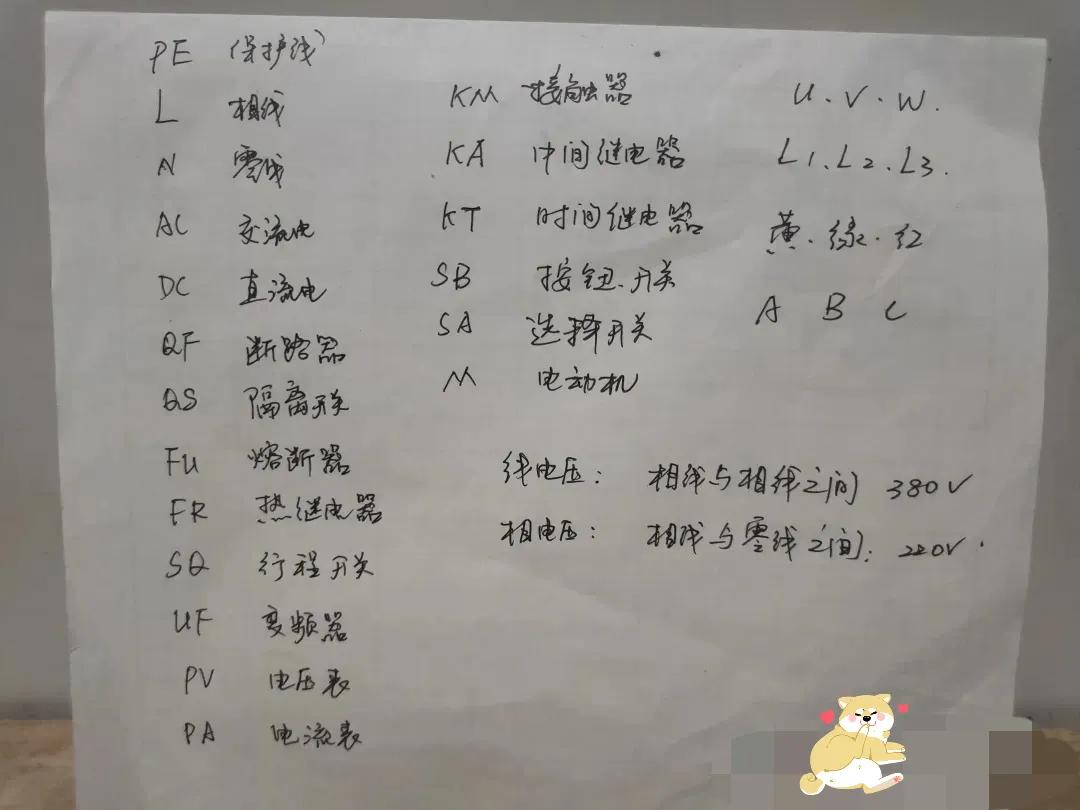 PE (保护线)
L 相线
N 零线
AC 交流电
DC 直流电
QF 断路器
QS 隔离开关
FU 熔断器
FR 热继电器
SQ 行程开关
UF 变频器
PV 电压表
PA 电流表
KM 接触器
KA 中间继电器
KT 时间继电器
SB 按钮.开关
SA 选择开关
M 电动机
U.V.W.
L1.L2.L3.
黄.绿.红
A B C
线电压: 相线与相线之间 380V
相电压: 相线与零线之间: 220V.